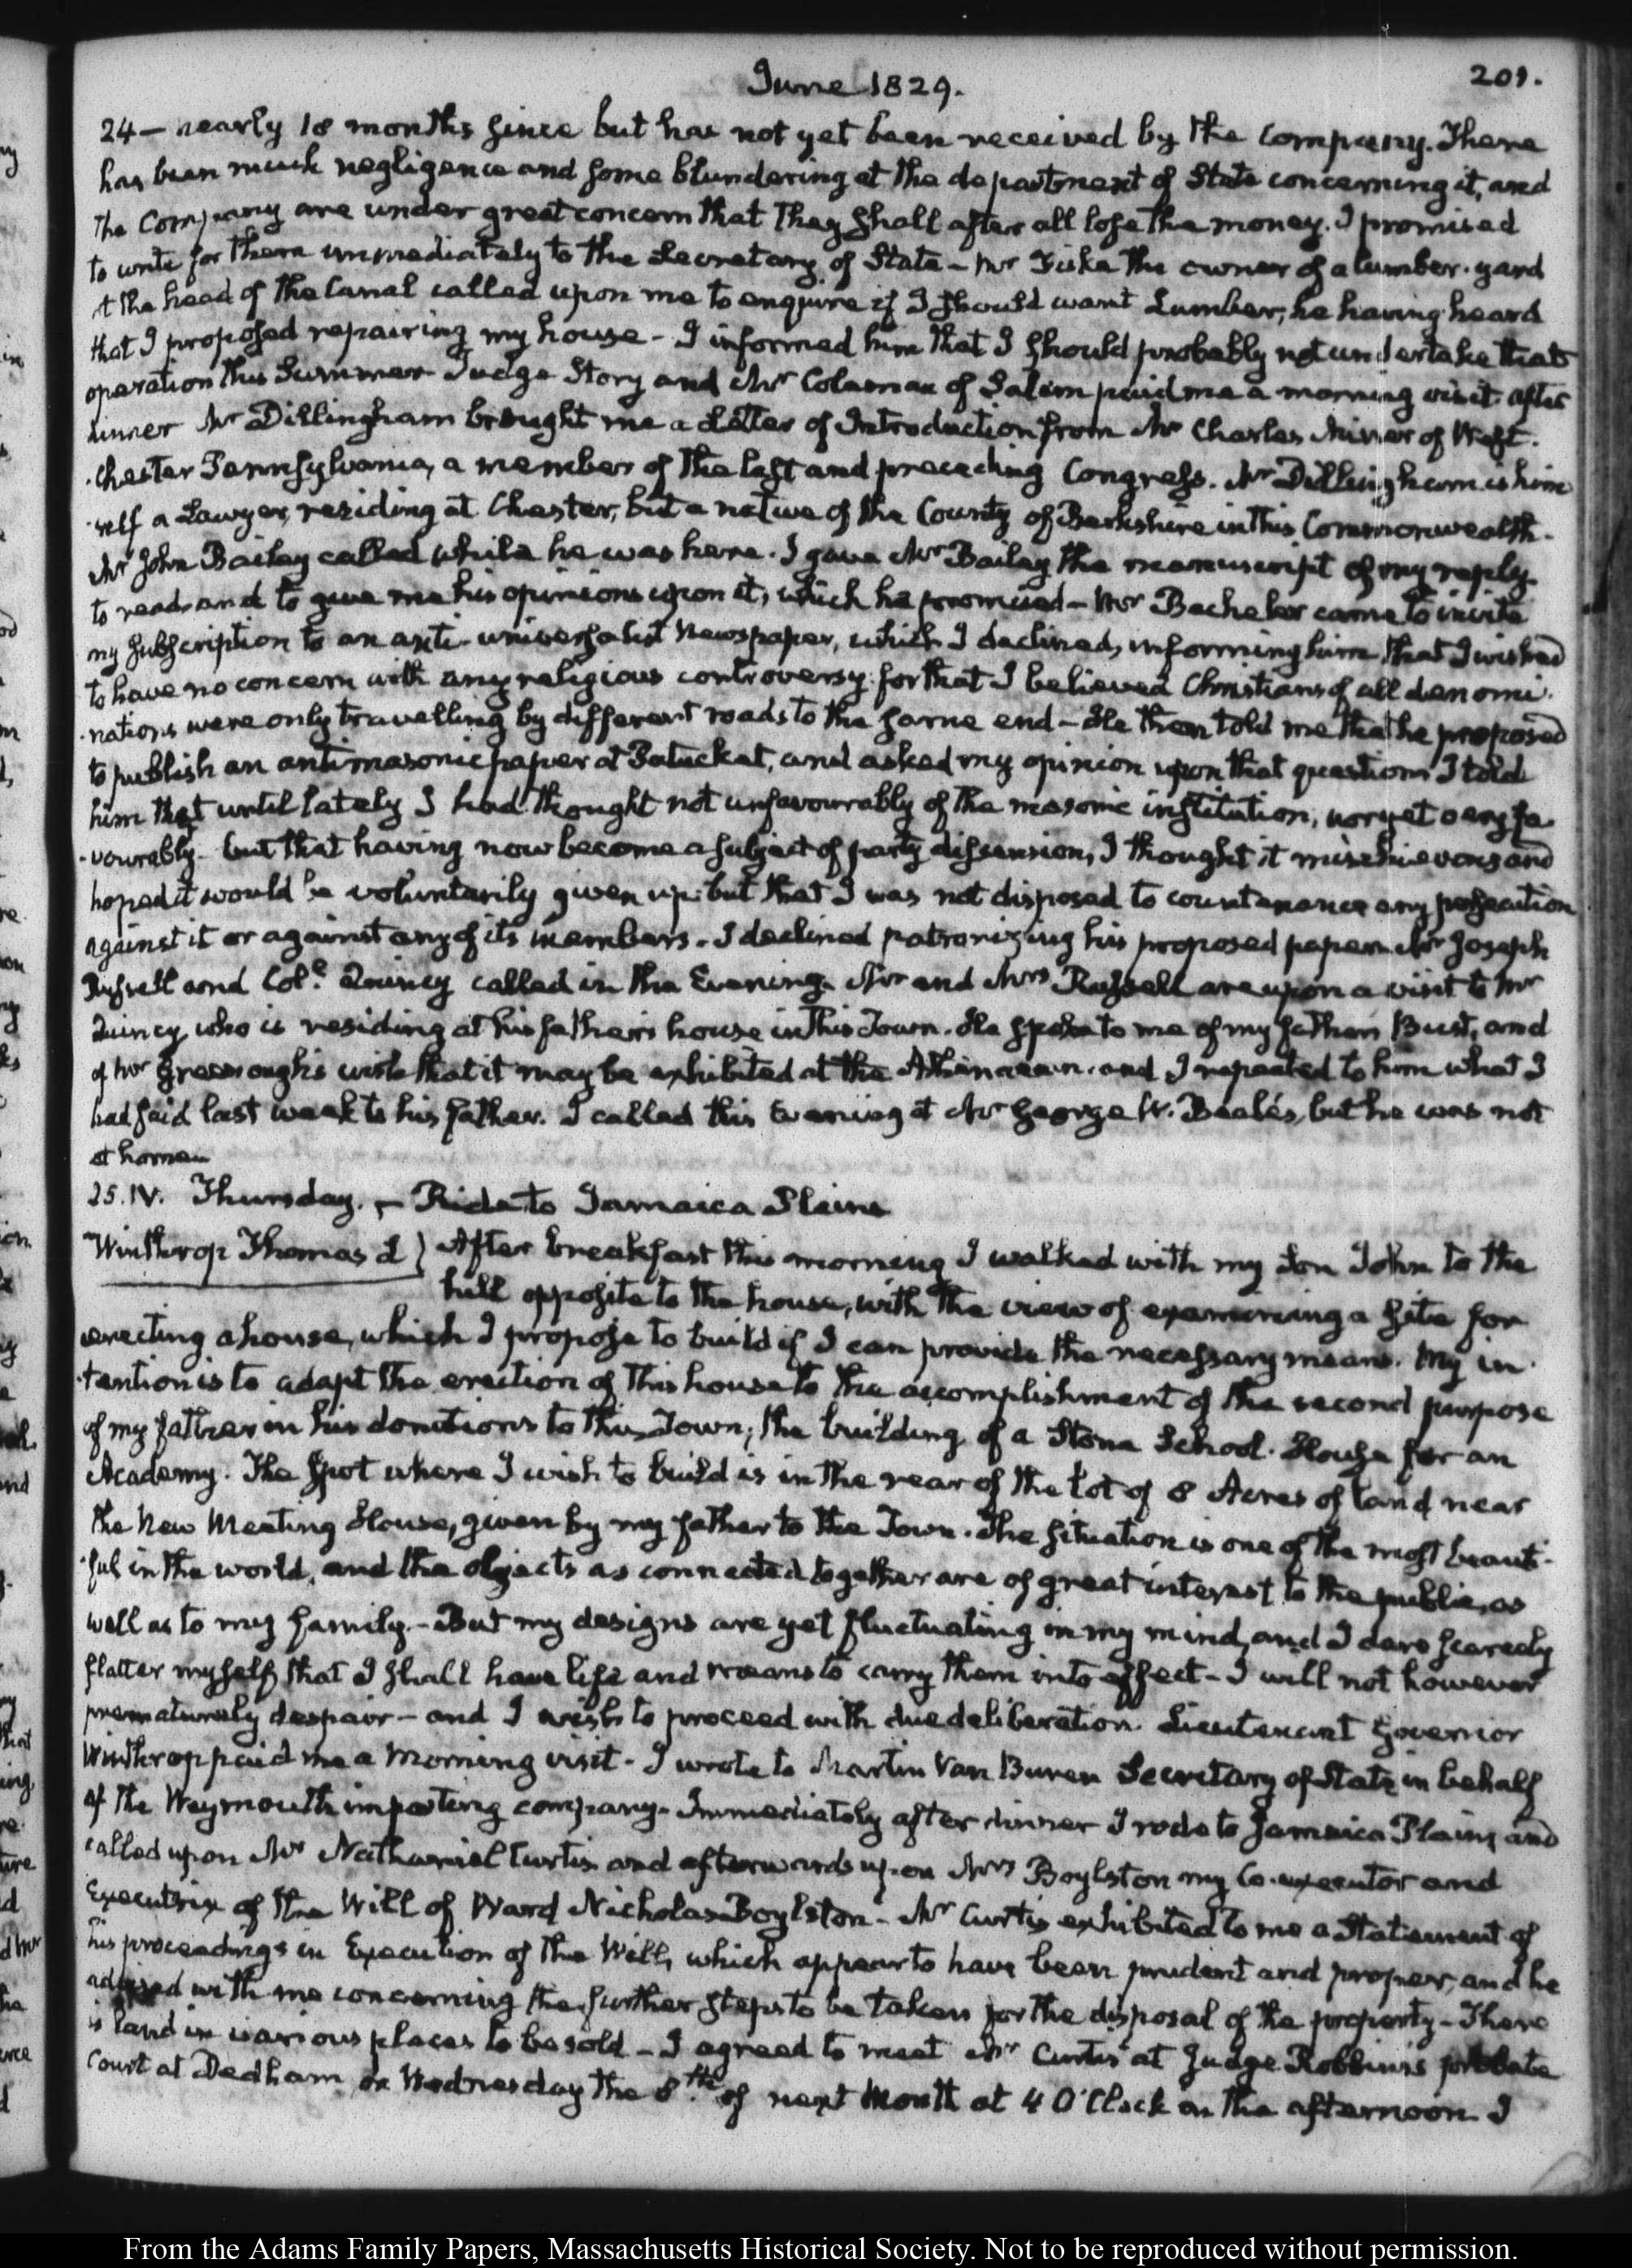 June 1829.
201.
24 — nearly 18 months since but has not yet been received by the Company. There
has been much negligence and some blundering at the department of State concerning it, and
the Company are under great concern that they shall after all lose the money. I promised
to write for them immediately to the Secretary of State — Mr Fiske the owner of a lumber-yard
at the head of the Canal called upon me to enquire if I should want Lumber, he having heard
that I proposed repairing my house — I informed him that I should probably not undertake that
operation this Summer Judge Story and Mr Colaman of Salem paid me a morning visit. after
dinner Mr Dillingham brought me a Letter of Introduction from Mr Charles Miner of West-
-chester Pennsylvania, a member of the last and preceding Congress. Mr Dillingham is him
-self a Lawyer, residing at Chester, but a native of the County of Berkshire in this Commonwealth.
Mr John Bailey called while he was here. I gave Mr Bailey the manuscript of my reply
to read, and to give me his opinions upon it, which he promised — Mr Bacheler came to invite
my subscription to an anti-universalist Newspaper, which I declined, informing him that I wished
to have no concern with any religious controversy: for that I believed Christians of all denomi-
-nations were only travelling by different roads to the same end — He then told me that he proposed
to publish an antimasonic paper at Patuckat, and asked my opinion upon that question. I told
him that until lately I had thought not unfavourably of the masonic institution, nor yet very fa-
-vourably — but that having now become a subject of party dissension, I thought it mischievous and
hoped it would be voluntarily given up: but that I was not disposed to countenance any persecution
against it or against any of its members. I declined patronizing his proposed paper. Mr Joseph
Russell and Col. Quincy called in the Evening. Mr and Mrs Russell are upon a visit to Mr
Quincy, who is residing at his father's house in this Town. He spoke to me of my father's Bust, and
of Mr Greenough's wish that it may be exhibited at the Athenaeum. and I repeated to him what I
had said last week to his father. I called this Evening at Mr George W. Beale's, but he was not
at home.
25. IV. Thursday. — Ride to Jamaica Plains
Winthrop Thomas L } After breakfast this morning I walked with my Son John to the
hill opposite to the house, with the view of examining a site for
erecting a house, which I propose to build if I can provide the necessary means. My in-
-tention is to adapt the erection of this house to the accomplishment of the second purpose
of my father in his donations to this Town; the building of a Stone School-House for an
Academy. The spot where I wish to build is in the rear of the lot of 8 Acres of land near
the New Meeting House, given by my father to the Town. The situation is one of the most beauti-
-ful in the world, and the objects as connected together are of great interest to the public, as
well as to my family — But my designs are yet fluctuating in my mind, and I dare scarcely
flatter myself that I shall have life and means to carry them into effect — I will not however
prematurely despair — and I wish to proceed with due deliberation. Lieutenant Governor
Winthrop paid me a morning visit — I wrote to Martin Van Buren Secretary of State in behalf
of the Weymouth importing company. Immediately after dinner I rode to Jamaica Plains and
called upon Mr Nathaniel Curtis and afterwards upon Mrs Boylston my Co-executor and
Executrix of the Will of Ward Nicholas Boylston — Mr Curtis exhibited to me a Statement of
his proceedings in Execution of the Will, which appear to have been prudent and proper, and he
advised with me concerning the further steps to be taken for the disposal of the property — There
is land in various places to be sold — I agreed to meet Mr Curtis at Judge Robbins's probate
Court at Dedham on Wednesday the 8th of next Month at 4 O'Clock in the afternoon. I
From the Adams Family Papers, Massachusetts Historical Society. Not to be reproduced without permission.